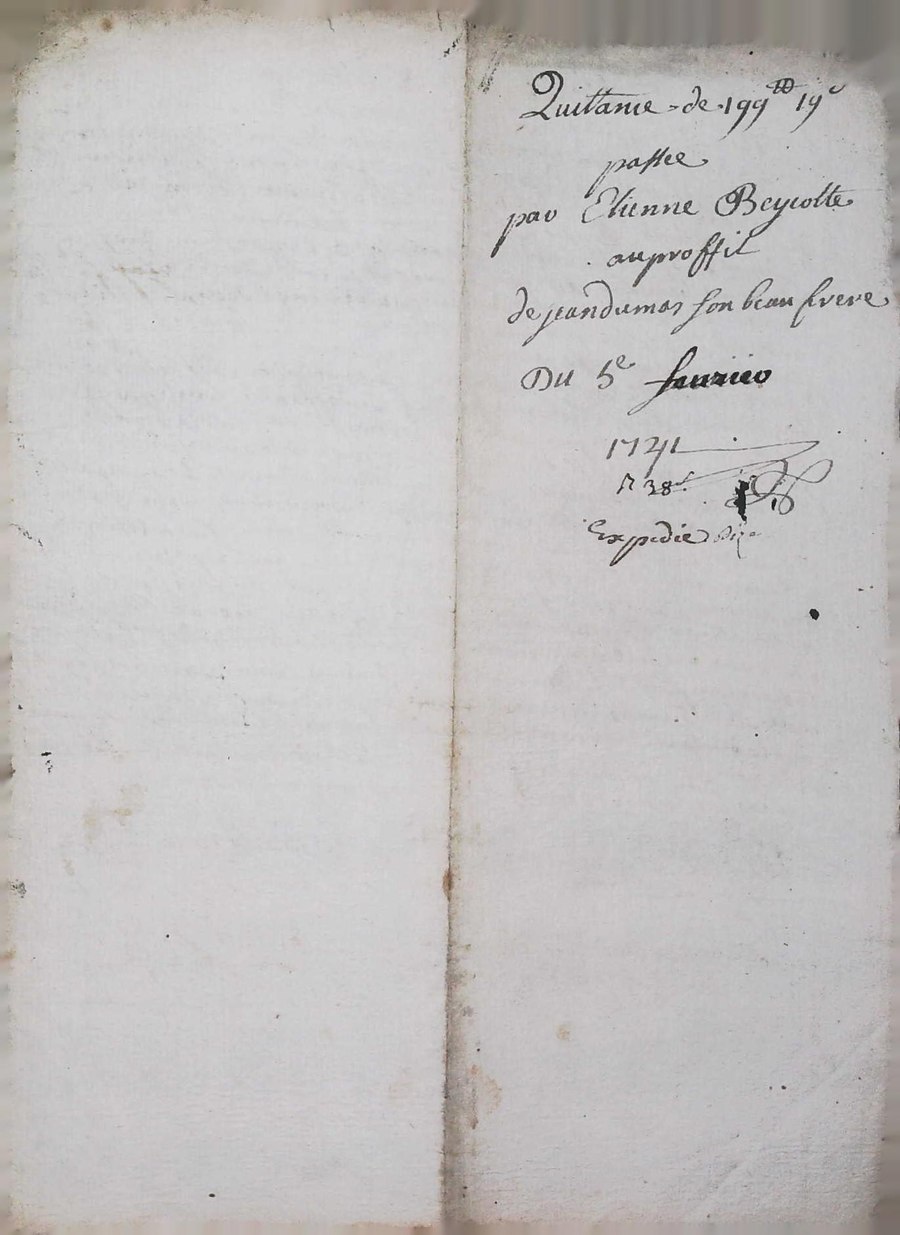 Quittance de 199# 19s
passee
par Etienne Beycotte
au proffit
de jean dumas son beau frere
Du 5e feurier
1741
Expedie